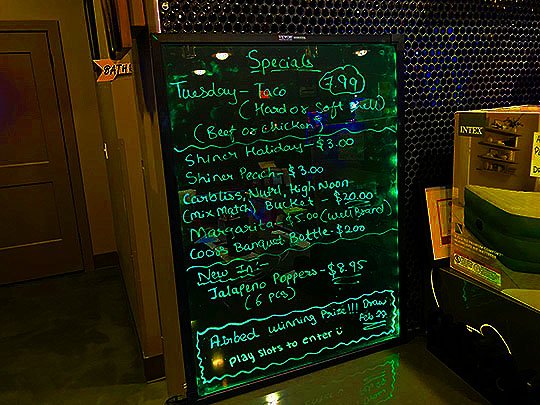 Specials
Tuesday - Taco 7.99
(Hard or Soft Shell)
(Beef or chicken)
Shiner Holiday - $3.00
Shiner Peach - $3.00
Carbliss, Nutrl, High Noon
(Mix Match) Bucket - $20.00
Margarita - $5.00 (Well Brand)
Coors Banquet Bottle - $2.00
New In:-
Jalapeno Poppers - $8.95
(6 pcs)
Airbed winning Prize!!! Draw
Feb 28
play slots to enter
INTEX
BATH